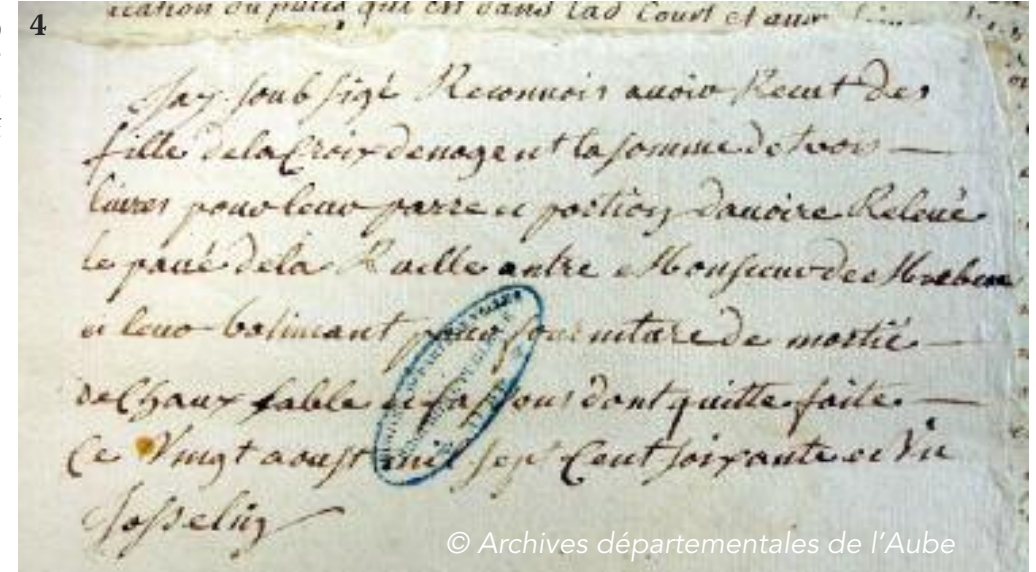 4
ication du puits qui est dans lad Court et
Jay soub sigé Reconnois auoir Recut des
fille dela Croix denogent la somme de trois
liures pour leur parre et portion dauoire Releué
le paué dela Ruelle antre Monsieur des
et leur batimant pour fourniture de mortié
de Chaux sable et fassons dont quitte faite
Ce Vingt aoust mil sept Cent soixante et Un
Josselin
© Archives départementales de l'Aube